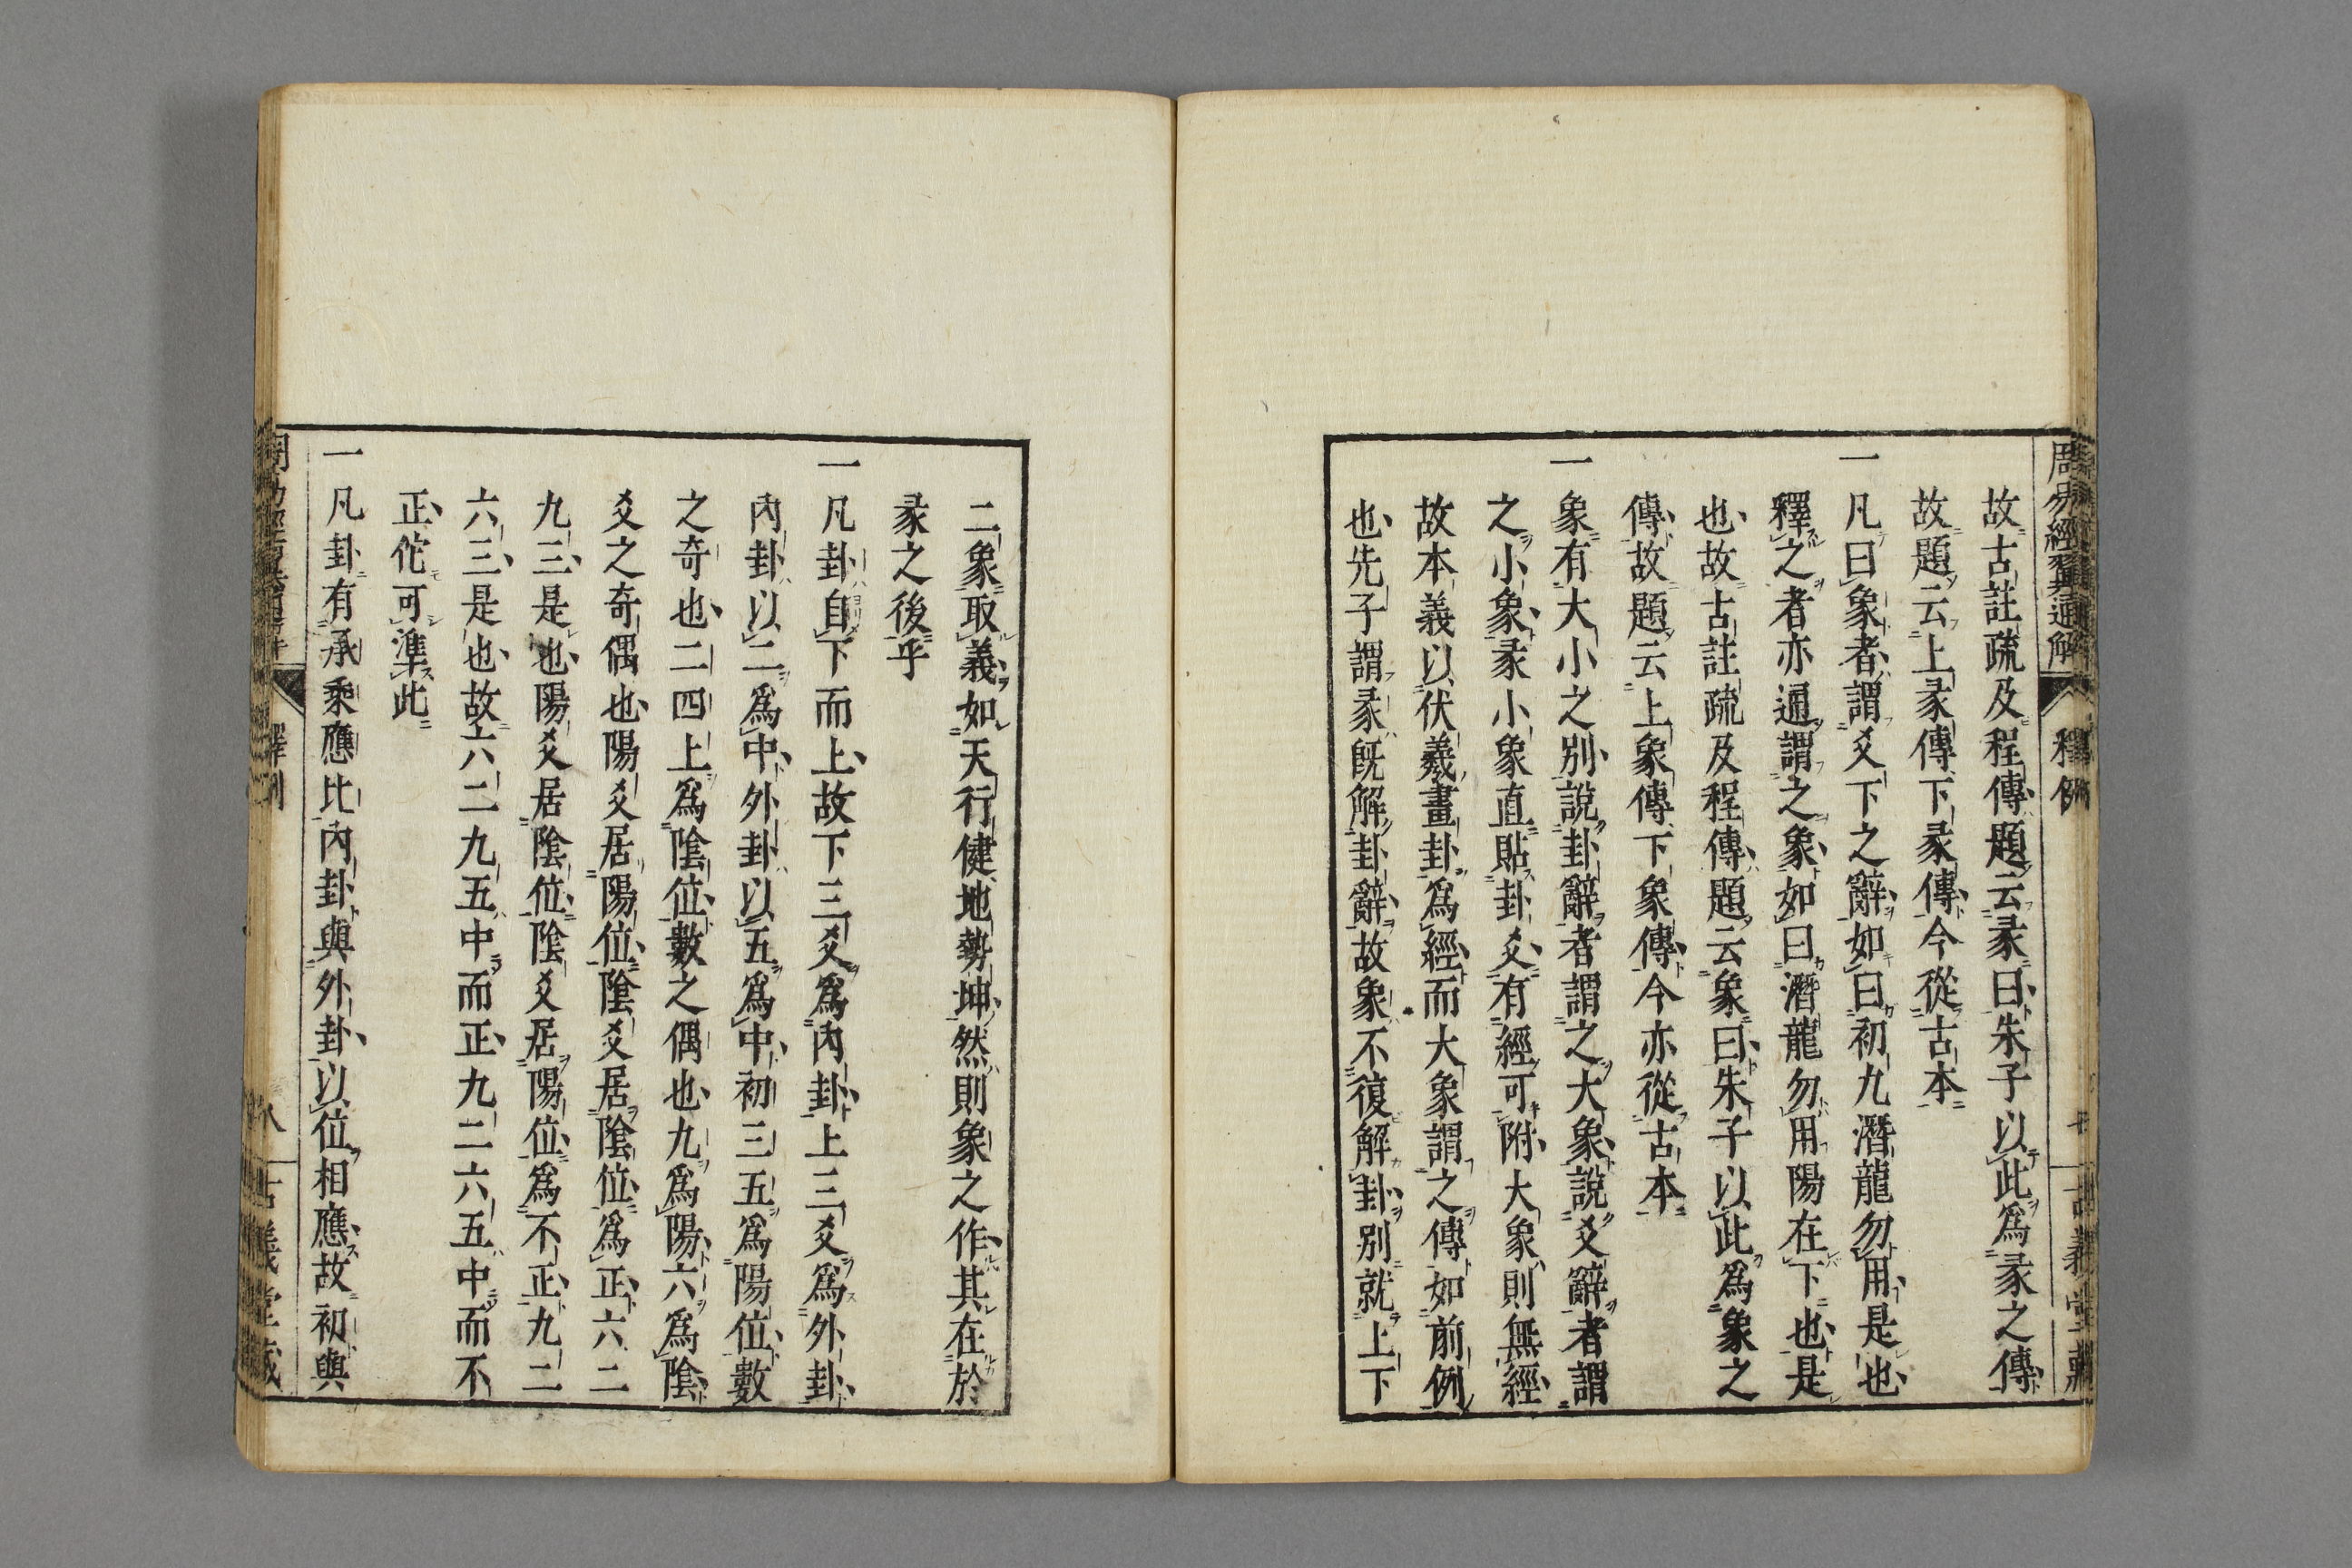 周易經翼通解
釋例
古義堂藏
故古註疏及程傳題云彖曰朱子以此爲彖之傳
故題云上彖傳下彖傳今從古本
一凡曰象者謂爻下之辭如曰初九潛龍勿用是也
釋之者亦通謂之象如曰潛龍勿用陽在下也是
也故古註疏及程傳題云象曰朱子以此爲象之
傳故題云上象傳下象傳今亦從古本
一象有大小之別說卦辭者謂之大象說爻辭者謂
之小象彖小象直貼卦爻有經可附大象則無經
故本義以伏羲畫卦爲經而大象謂之傳如前例
也先子謂彖既解卦辭故象不復解卦別就上下
二象取義如天行健地勢坤然則象之作其在於
彖之後乎
一凡卦自下而上故下三爻爲內卦上三爻爲外卦
內卦以二爲中外卦以五爲中初三五爲陽位數
之奇也二四上爲陰位數之偶也九爲陽六爲陰
爻之奇偶也陽爻居陽位陰爻居陰位爲正六二
九三是也陽爻居陰位陰爻居陽位爲不正九二
六三是也故六二九五中而正九二六五中而不
正佗可準此
一凡卦有承乘應比內卦與外卦以位相應故初與
釋例
八
古義堂藏